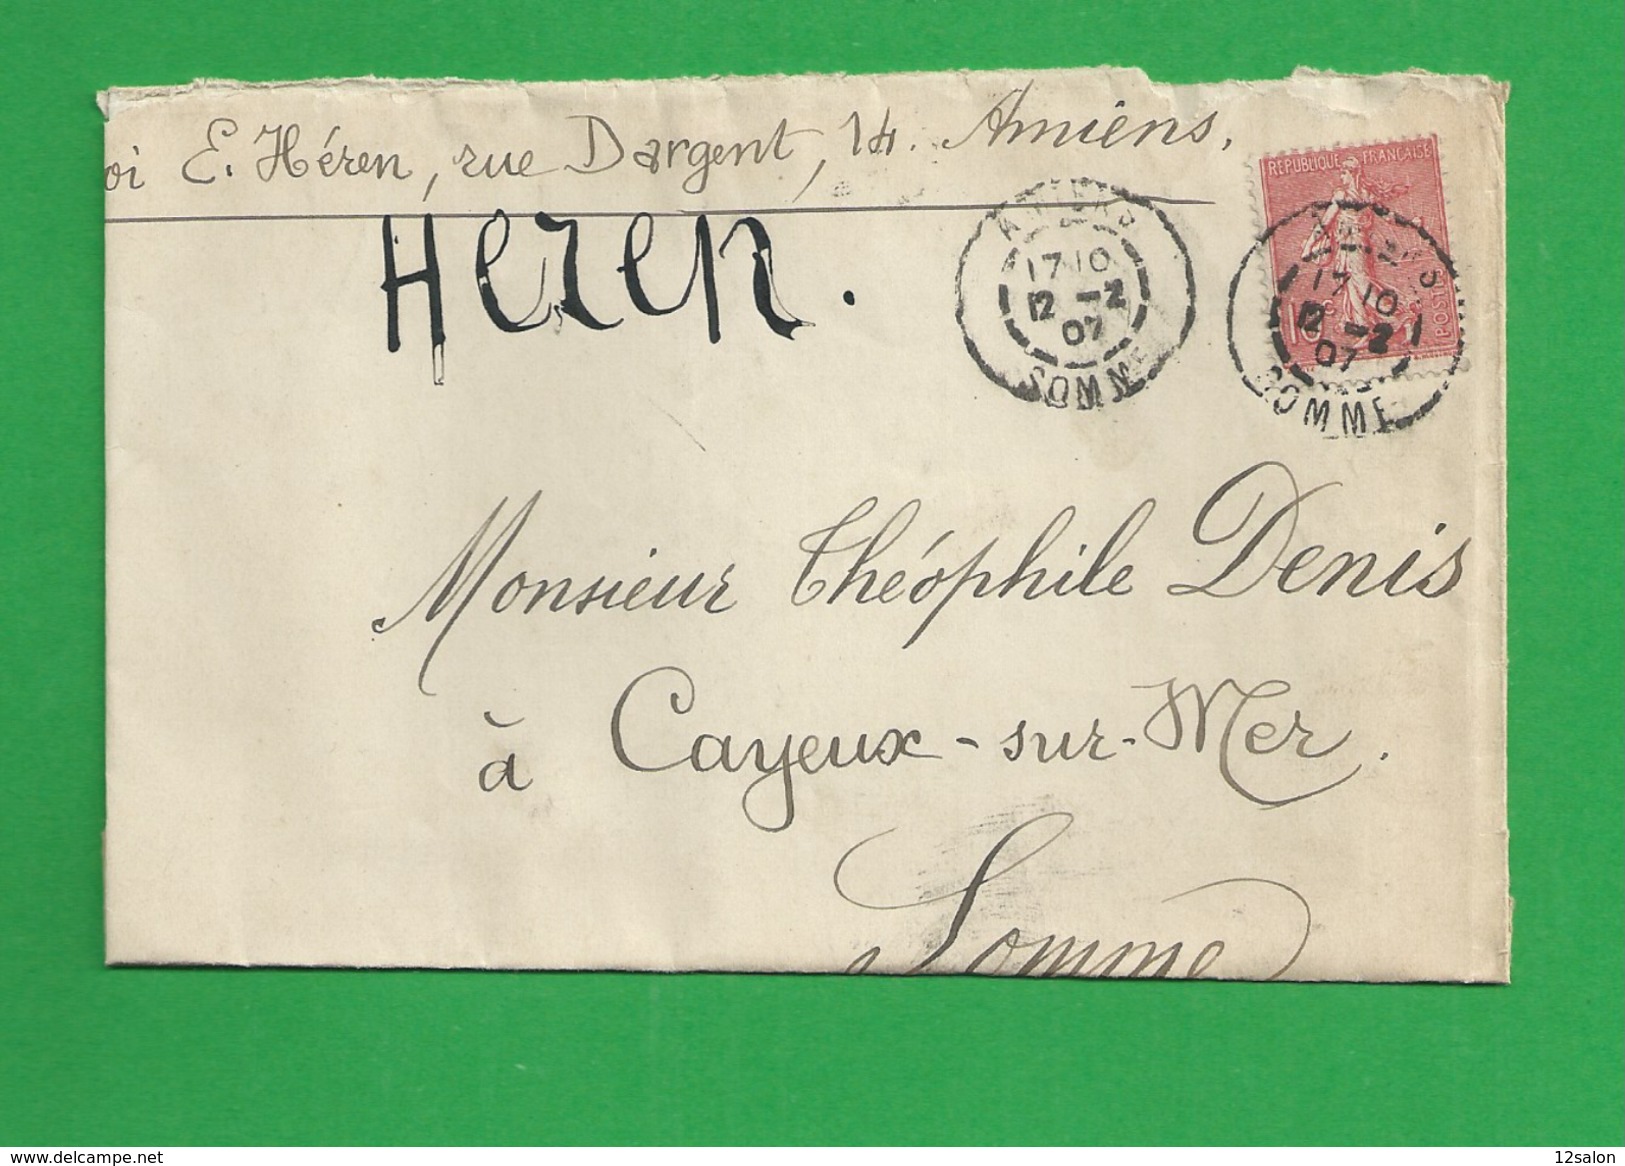 oi E. Héren, rue Dargent, 14. Amiens.
Héren.
RÉPUBLIQUE FRANÇAISE
POSTES
10c
AMIENS
17 10
12 -2
07
SOMME
AMIENS
17 10
12 -2
07
SOMME
Monsieur Théophile Denis
à Cayeux-sur-Mer.
Somme
www.delcampe.net
12salon